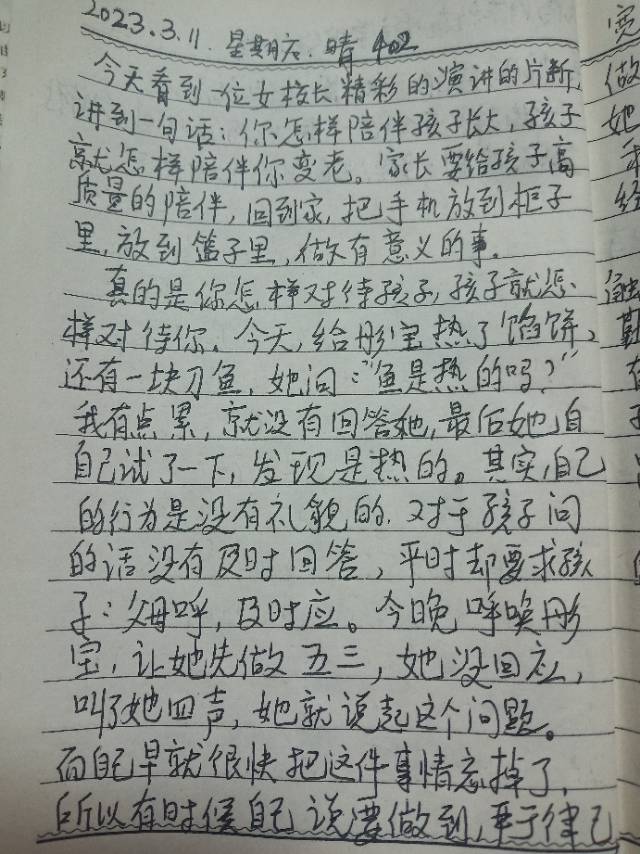 2023.3.11. 星期六. 晴 402
今天看到一位女校长精彩的演讲的片断,
讲到一句话：你怎样陪伴孩子长大，孩子
就怎样陪伴你变老。家长要给孩子高
质量的陪伴，回到家，把手机放到柜子
里，放到篮子里，做有意义的事。
真的是你怎样对待孩子，孩子就怎
样对待你。今天，给彤宝热了馅饼、
还有一块刀鱼，她问：“鱼是热的吗？”
我有点累，就没有回答她，最后她自
自己试了一下，发现是热的。其实，自己
的行为是没有礼貌的．对于孩子问
的话没有及时回答，平时却要求孩
子：父母呼，及时应。今晚呼唤彤
宝，让她先做五三，她没回应，
叫了她四声，她就说起这个问题。
而自己早就很快把这件事情忘掉了，
所以有时候自己说要做到，严于律己
宽
做
她